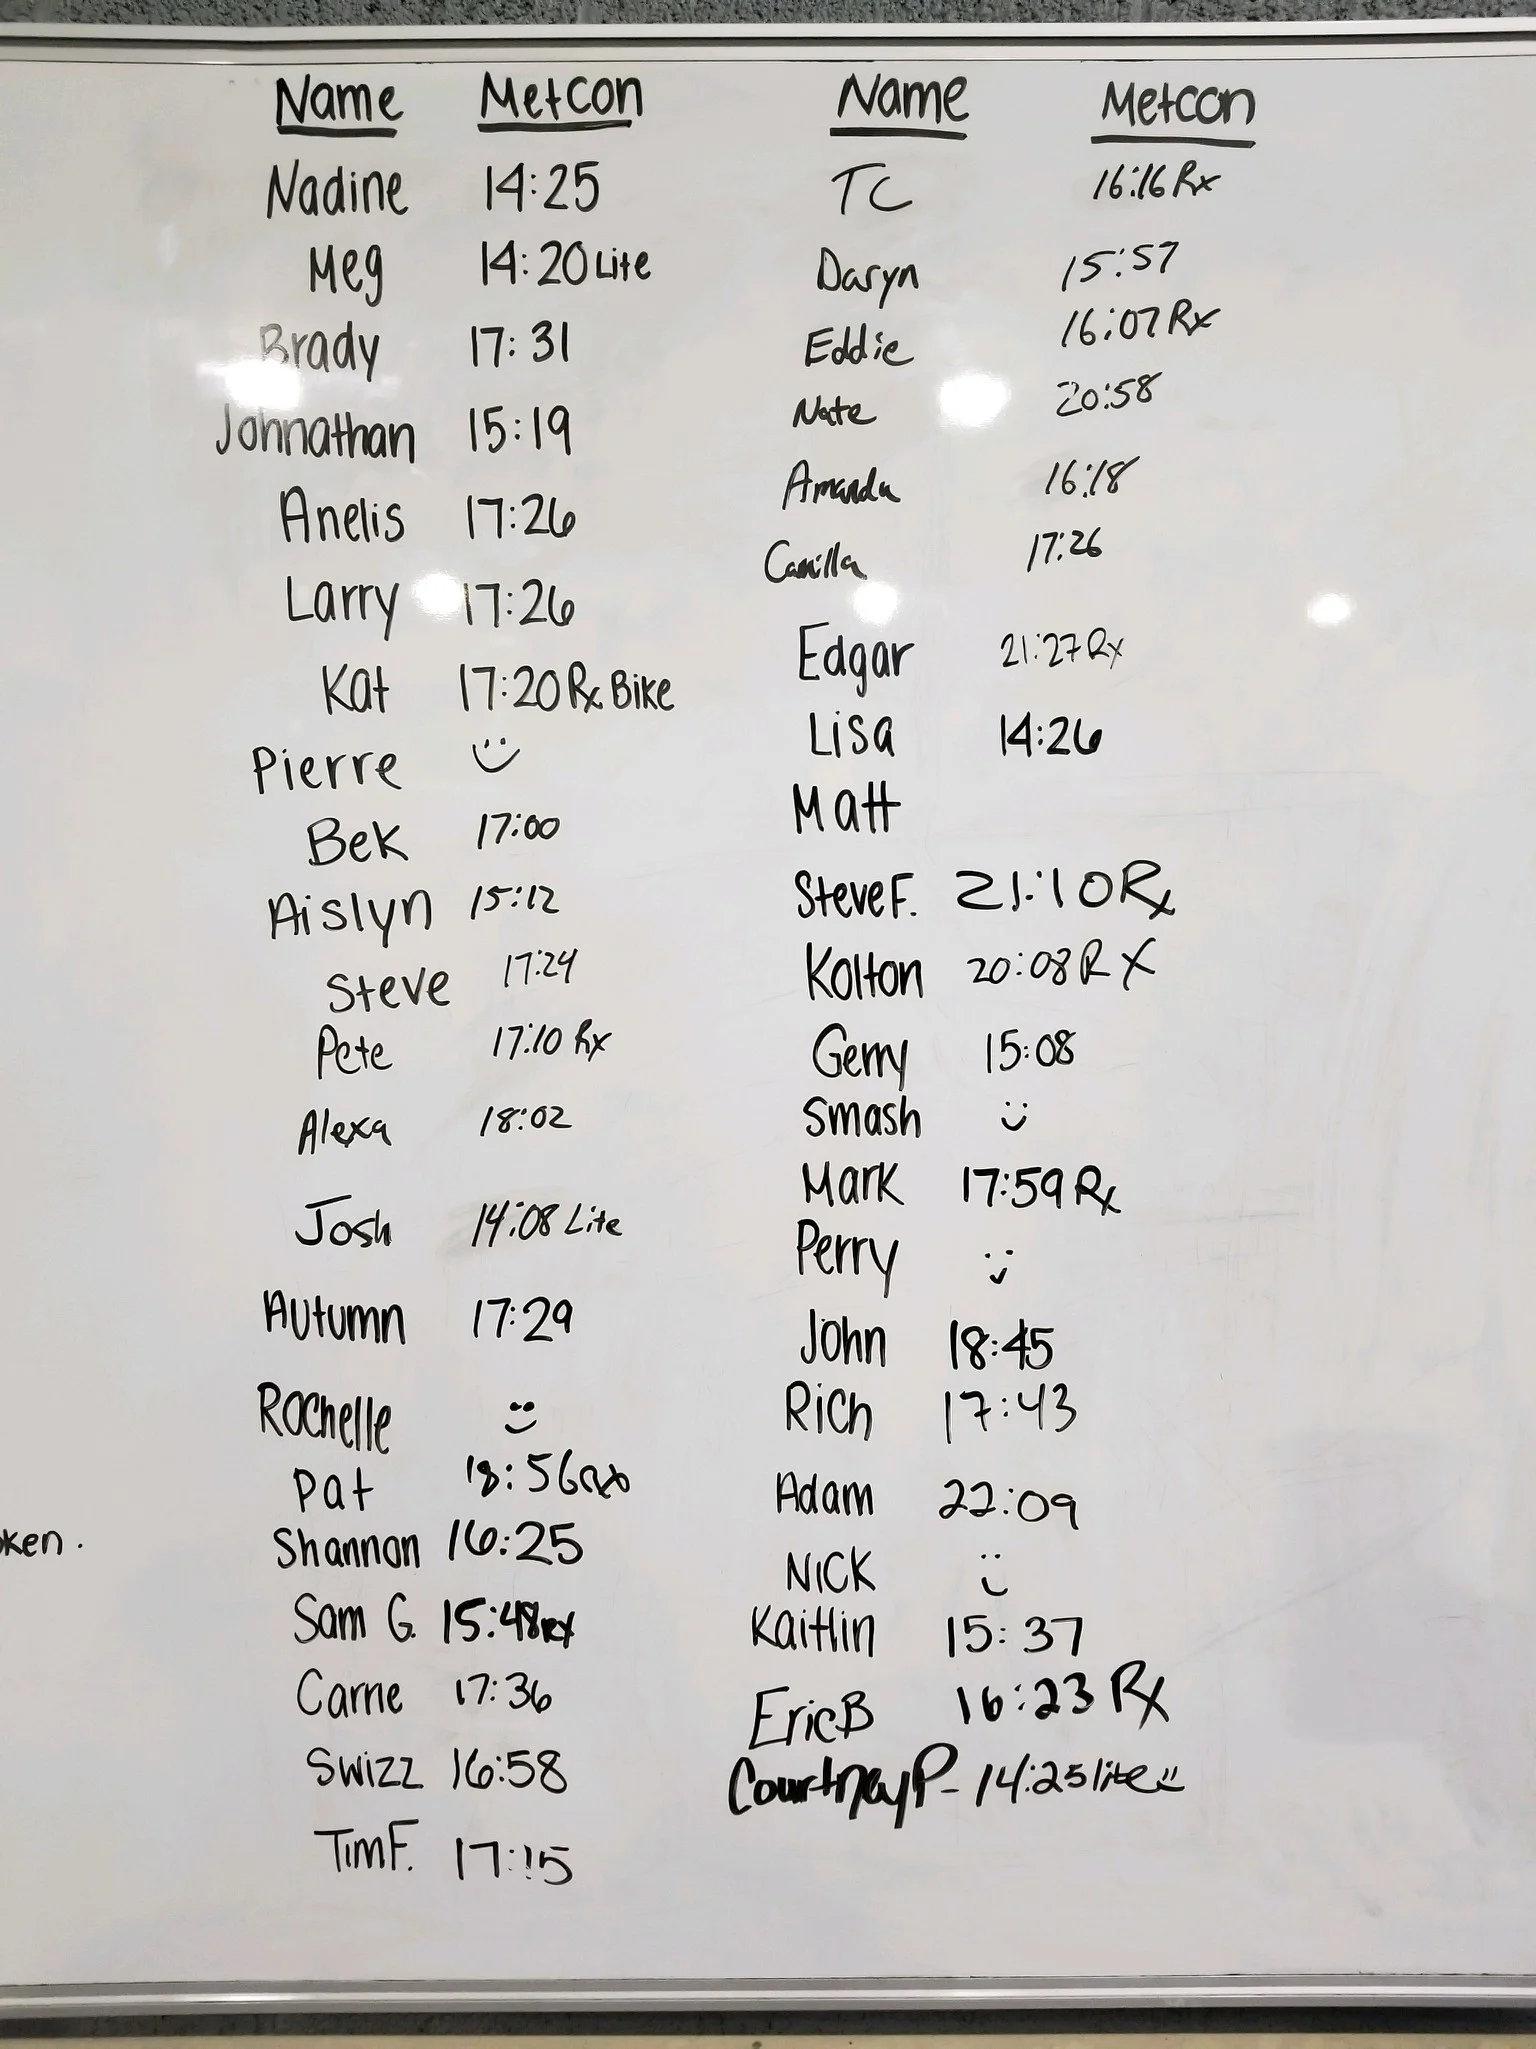 Name Metcon
Nadine 14:25
Meg 14:20 Lite
Brady 17:31
Johnathan 15:19
Anelis 17:26
Larry 17:26
Kat 17:20 Rx Bike
Pierre
Bek 17:00
Aislyn 15:12
Steve 17:24
Pete 17:10 Rx
Alexa 18:02
Josh 14:08 Lite
Autumn 17:29
Rochelle
Pat 18:56 Rx
Shannon 16:25
Sam G. 15:48 Rx
Carrie 17:36
Swizz 16:58
Tim F. 17:15
Name Metcon
TC 16:16 Rx
Daryn 15:57
Eddie 16:07 Rx
Nate 20:58
Amanda 16:18
Camilla 17:26
Edgar 21:27 Rx
Lisa 14:26
Matt
Steve F. 21:10 Rx
Kolton 20:08 RX
Gerry 15:08
Smash
Mark 17:59 Rx
Perry
John 18:45
Rich 17:43
Adam 22:09
Nick
Kaitlin 15:37
Eric B 16:23 Rx
Courtney P - 14:25 lite